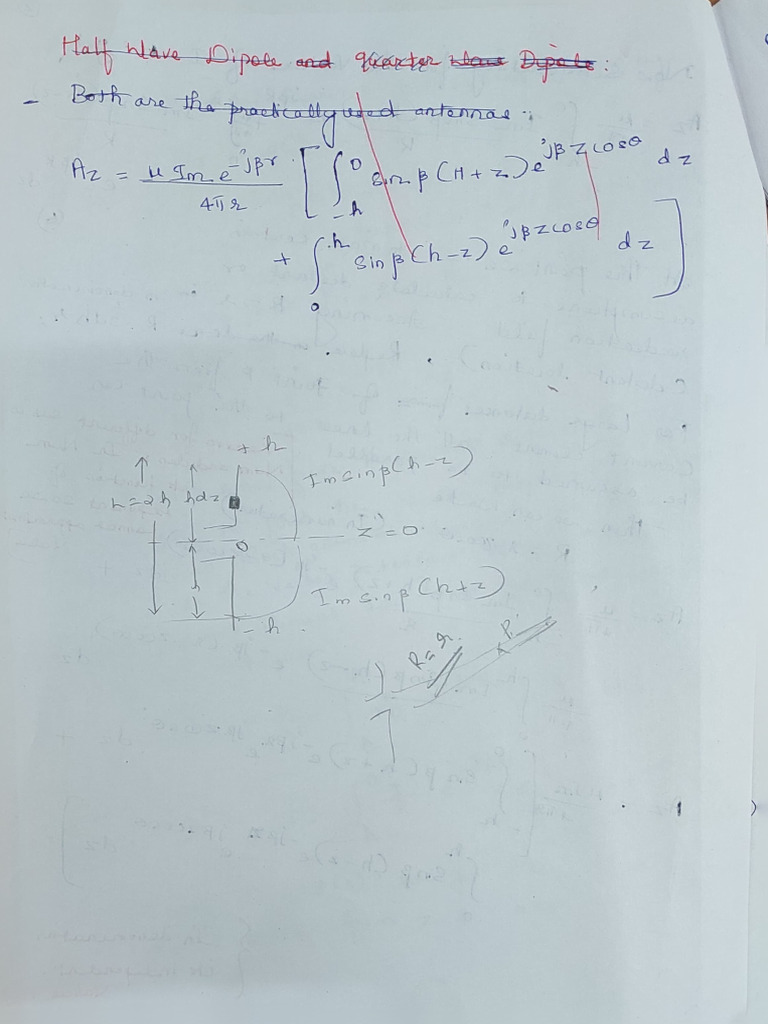 Half Wave Dipole and quarter wave Dipole:
- Both are the practically used antennas:
Az = μ Im e^-jβr / 4πr [ ∫_-h^0 sin β (H + z) e^jβ z cosθ dz
+ ∫_0^h sin β (h-z) e^jβ z cosθ dz ]
+ h
Im sin β (h-z)
L = 2h h dz
0 z = 0
h
Im sin β (h+z)
- h
R = r. P.